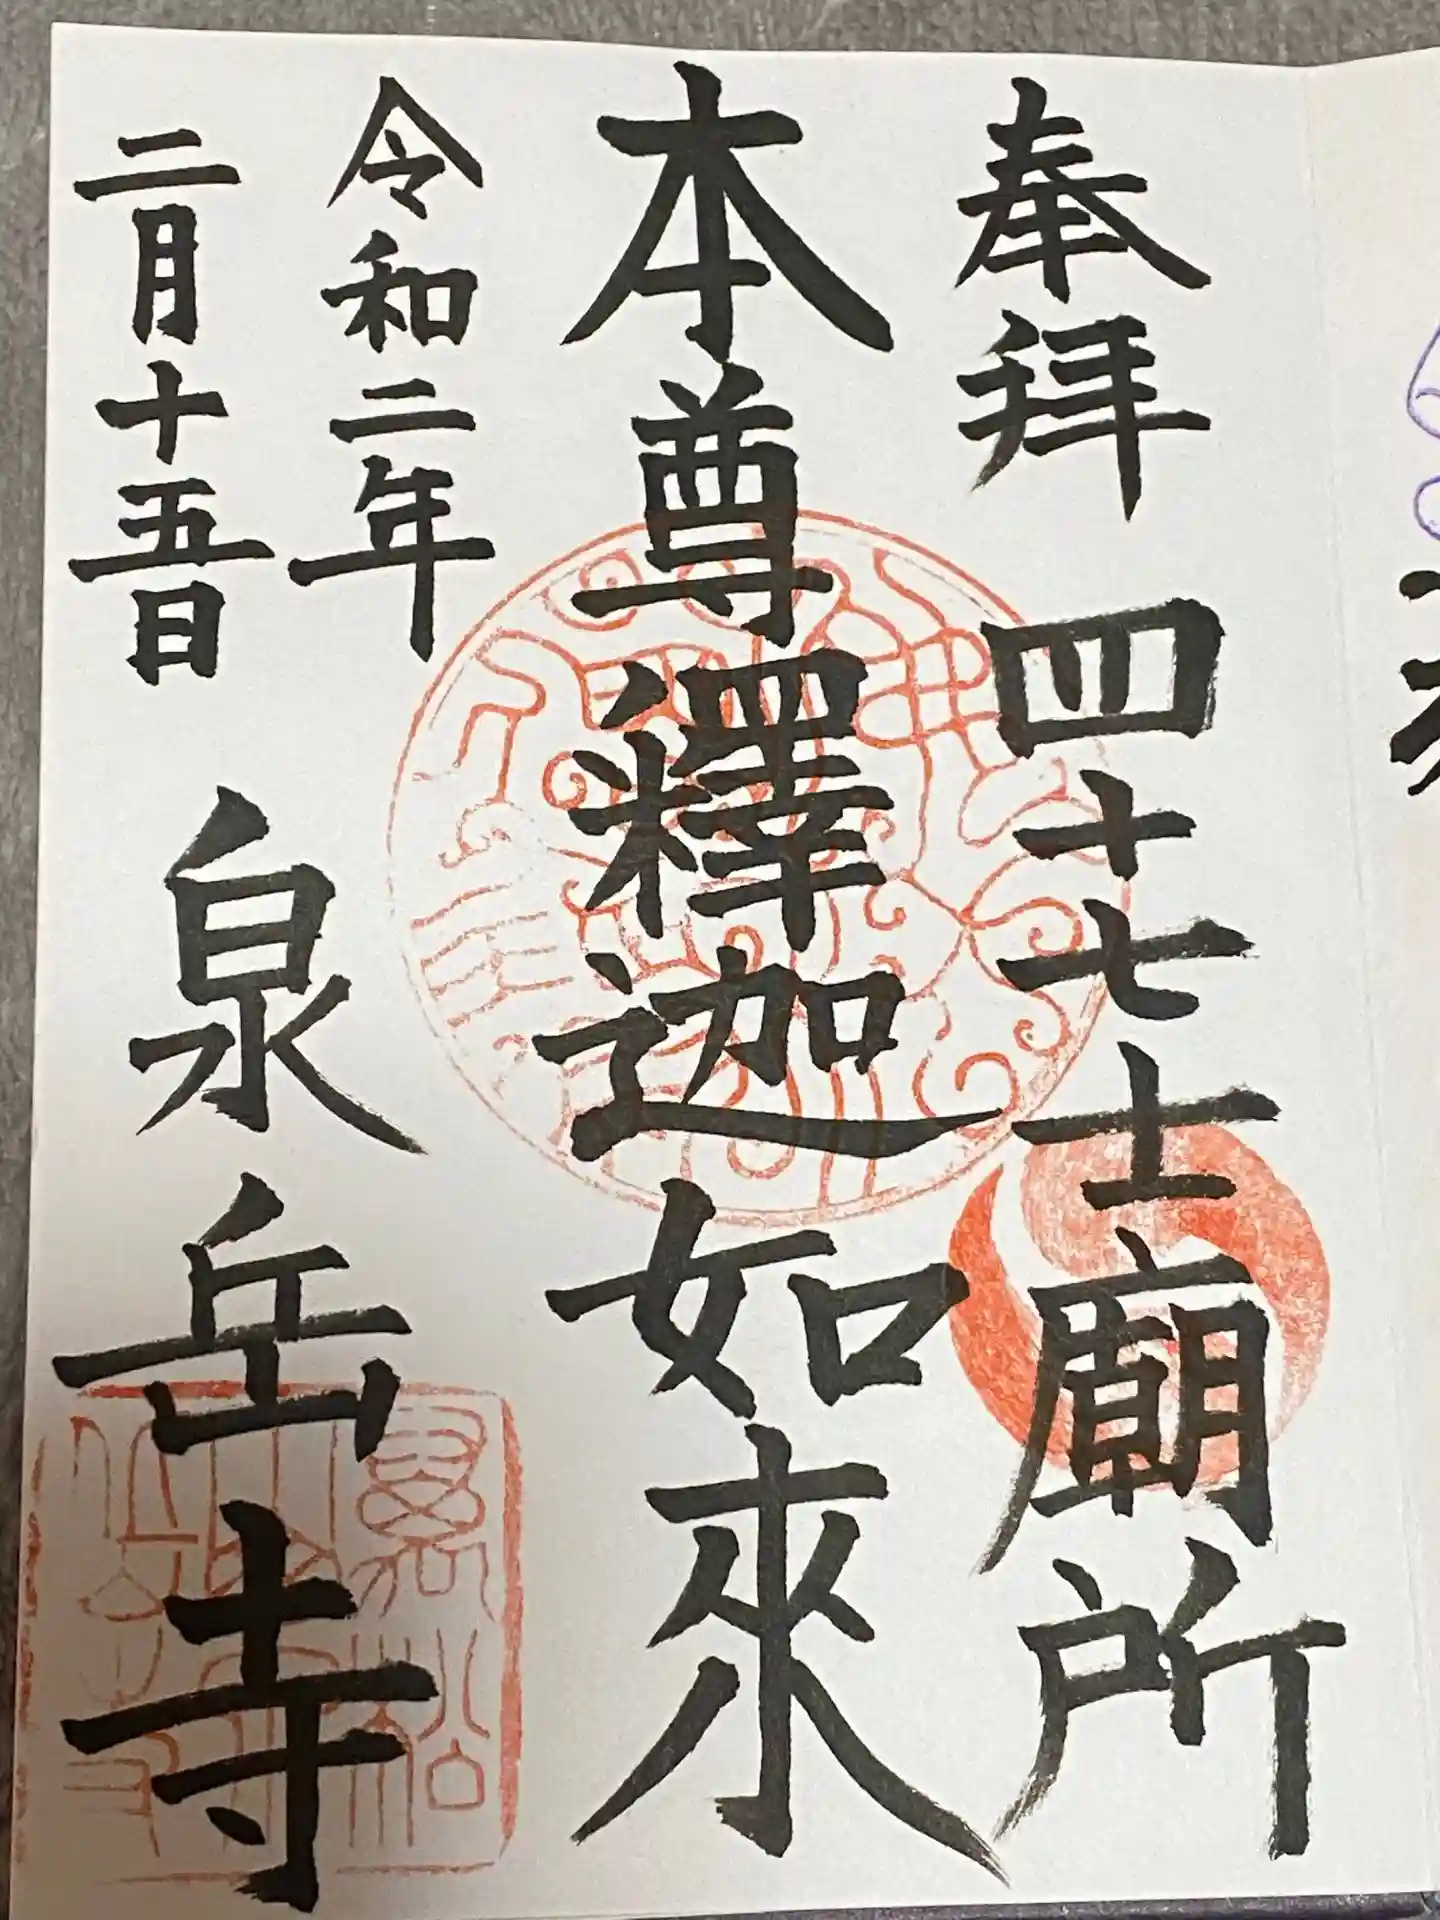 奉拜 四十七士廟所
本尊釋迦如來
令和二年
二月十五日
泉岳寺